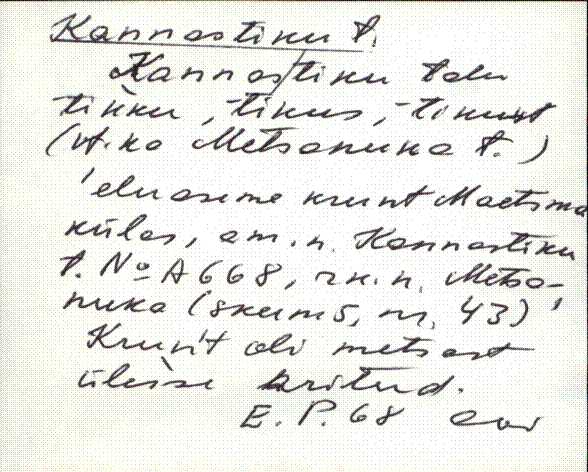 Kannastiku t.
Kannastiku talu
tikku, -tikus, -tikust
(vt. ka Metsanuka t.)
'eluaseme krunt Maetsma
külas, am. n. Kannastiku
t. No A 668, rk. n. Metsa-
nuka (skeem 5, nr. 43)'
Krun't oli metsast
ülesse
E. P. 68